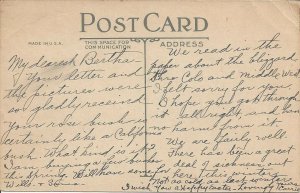 POST CARD
MADE IN U.S.A.
THIS SPACE FOR
COMMUNICATION
ADDRESS
My dearest Bertha
Your letter and
the pictures were
so gladly received
your rose bush is
certainly like a California
bush. What kind is it? I
am buying a few bushes
this Spring. Will have some
We read in the
paper about the blizzard
thru Colo and middle West
I felt sorry for you.
I hope you got through
it all right, and had
no harm from it.
We are fairly well.
There has been a great
deal of sickness out
here this winter